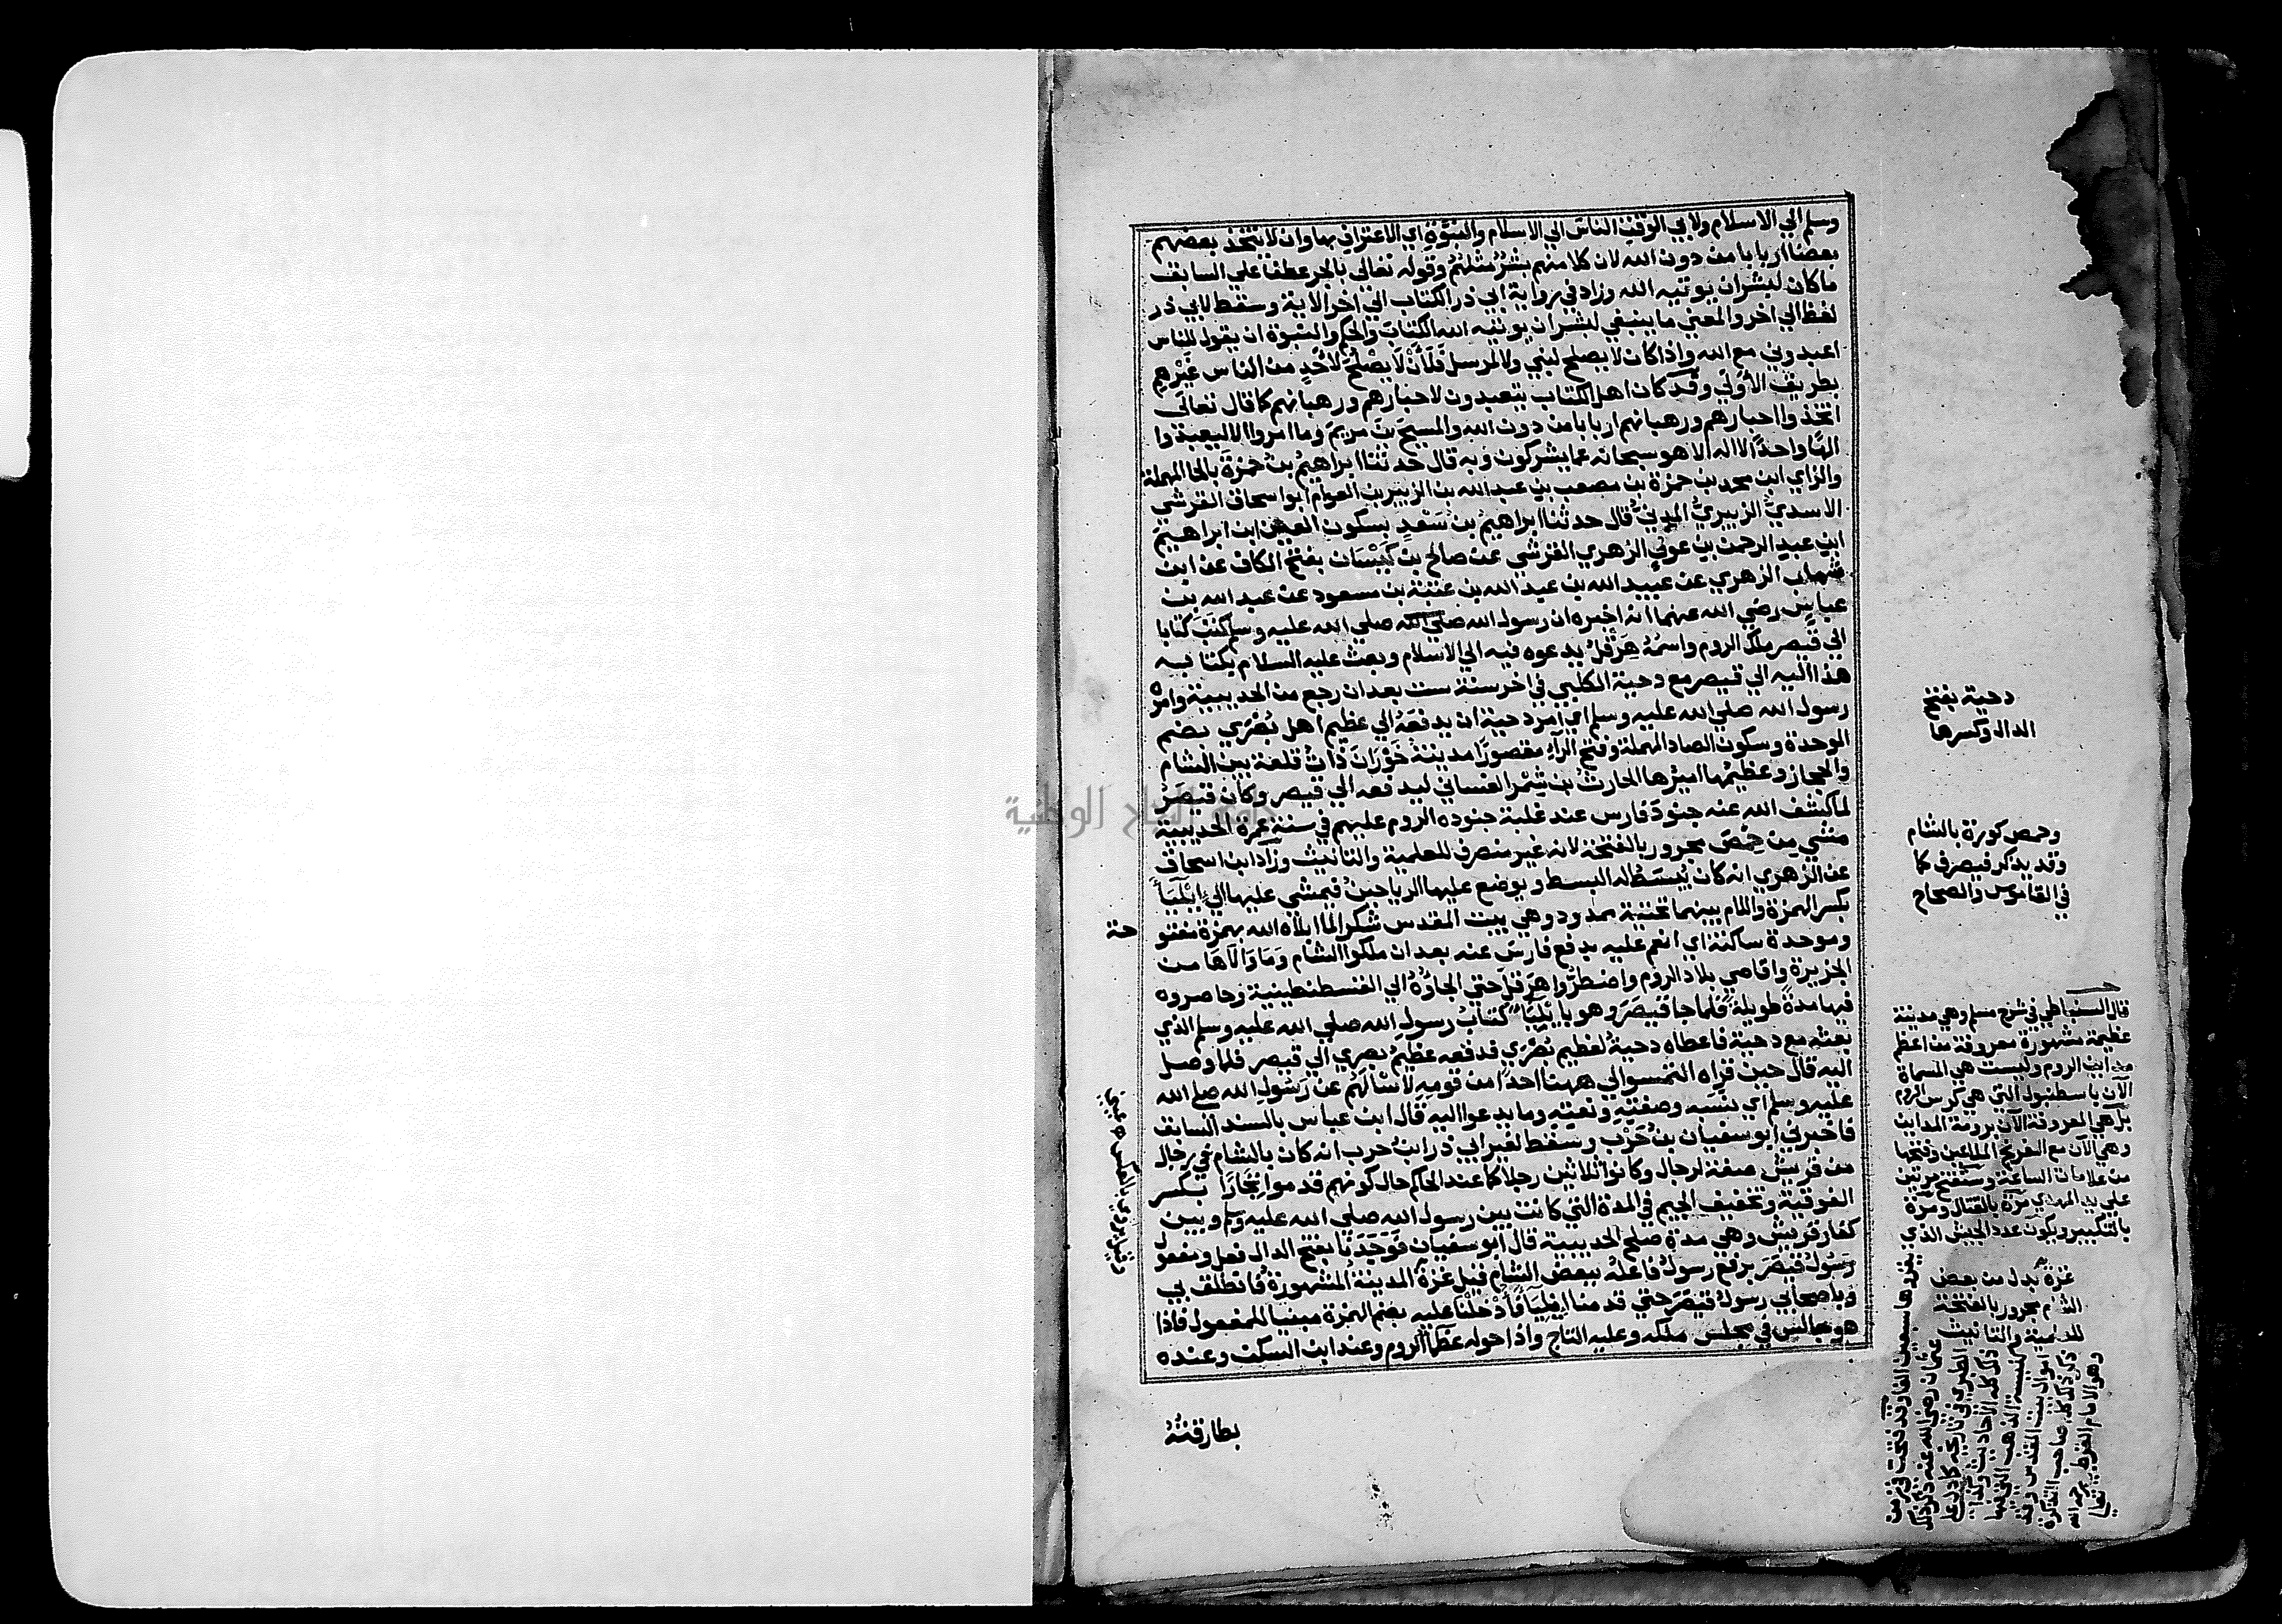 وسلم الي الاسلام ولابي الوقت الناس الي الاسلام والنبوة اي الاعتراف بها وان لا يتخذ بعضهم
بعضا اربابا من دون الله لان كلا منهم بشر مثلهم وقوله تعالي بالجر عطفا علي السابق
ما كان لبشر ان يوتيه الله وزاد في رواية ابي ذر الكتاب الي اخر الاية وسقط لابي ذر
لفظ الي اخر والمعني ما ينبغي لبشر ان يوتيه الله الكتاب والحكم والنبوة ان يقول للناس
اعبدوني مع الله واذا كان لا يصلح لنبي ولا لمرسل فلأن لا يصلح لاحد من الناس غيرهم
بطريق الأولي وقد كان اهل الكتاب يتعبدون لاحبارهم ورهبانهم كما قال تعالي
اتخذوا احبارهم ورهبانهم اربابا من دون الله والمسيح بن مريم وما امروا الا ليعبدوا
الها واحدا لا اله الا هو سبحانه عما يشركون وبه قال حدثنا ابراهيم بن حمزة بالحا المهملة
والزاي ابن محمد بن حمزة بن مصعب بن عبد الله بن الزبير بن العوام ابو اسحاق القرشي
الاسدي الزبيري المدني قال حدثنا ابراهيم بن سعد بسكون العين ابن ابراهيم
ابن عبد الرحمن بن عوف الزهري القرشي عن صالح بن كيسان بفتح الكاف عن ابن
شهاب الزهري عن عبيد الله بن عبد الله بن عتبة بن مسعود عن عبد الله بن
عباس رضي الله عنهما انه اخبره ان رسول الله صلي الله صلي الله عليه وسلم كتب كتابا
الي قيصر ملك الروم واسمه هرقل يدعوه فيه الي الاسلام وبعث عليه السلام بكتابه
هذا اليه الي قيصر مع دحية الكلبي في اخر سنة ست بعد ان رجع من الحديبية وامره
رسول الله صلي الله عليه وسلم اي امر دحية ان يدفعه الي عظيم اهل بصري بضم
الموحدة وسكون الصاد المهملة وفتح الرآء مقصورا مدينة حوران ذات قلعة بين الشام
والحجاز وعظيمها اميرها الحارث بن شمر الغساني ليدفعه الي قيصر وكان قيصر
لما كشف الله عنه جنود فارس عند غلبة جنوده الروم عليهم في سنة عمرة الحديبية
مشي من حمص مجرور بالفتحة لانه غير منصرف للعلمية والتانيث وزاد ابن اسحاق
عن الزهري انه كان يبسط له البسط ويوضع عليها الرياحين فيمشي عليها الي ايليآء
بكسر الهمزة واللام بينهما تحتية ممدود وهي بيت المقدس شكرا لما ابلاه الله بهمزة مفتو
حة
وموحدة ساكنة اي انعم عليه بدفع فارس عنه بعد ان ملكوا الشام وما والاها من
الجزيرة واقاصي بلاد الروم واضطروا هرقل حتي الجاوه الي القسطنطينية وحاصروه
فيها مدة طويلة فلما جا قيصر وهو بايليآء كتاب رسول الله صلي الله عليه وسلم الذي
بعثه مع دحية فاعطاه دحية لعظيم بصري فدفعه عظيم بصري الي قيصر فلما وصل
اليه قال حين قراه التمسوا لي ههنا احدا من قومه لاسالهم عن رسول الله صلي الله
عليه وسلم اي نسبه وصفته ونعته وما يدعوا اليه قال ابن عباس بالسند السابق
فاخبرني ابو سفيان بن حرب وسقط لغير ابي ذر ابن حرب انه كان بالشام في رجال
من قريش صفة لرجال وكانوا ثلاثين رجلا كما عند الحاكم حال كونهم قدموا تجارا بكسر
الفوقية وتخفيف الجيم في المدة التي كانت بين رسول الله صلي الله عليه وسلم وبين
كفار قريش وهي مدة صلح الحديبية قال ابو سفيان فوجدنا بفتح الدال فعل ومفعول
رسول قيصر برفع رسول فاعله ببعض الشام قيل غزة المدينة المشهورة فانطلق بي
وباصحابي رسول قيصر حتي قدمنا ايليآء فأدخلنا عليه بضم الهمزة مبنيا للمفعول فاذا
هو جالس في مجلس ملكه وعليه التاج واذا حوله عظما الروم وعند ابن السكن وعنده
بطارقته
دحية بفتح
الدال وكسرها
وحمص كورة بالشام
وقد يذكر فيصرف كما
في القاموس والصحاح
قال السنباطي في شرح مسلم وهي مدينة
عظيمة مشهورة معروفة من اعظم
مداين الروم وليست هي المسماة
الآن باسطنبول التي هي كرسي الروم
بل هي المعروفة الآن برومة المداين
وهي الآن مع الفرنج الملاعين وفتحها
من علامات الساعة وستفتح مرتين
علي يد المهدي مرة بالقتال ومرة
بالتكبير ويكون عدد الجيش الذي
غزة بدل من بعض
الشام مجرور بالفتحة
للعلمية والتانيث
جامعة النجاح الوطنية